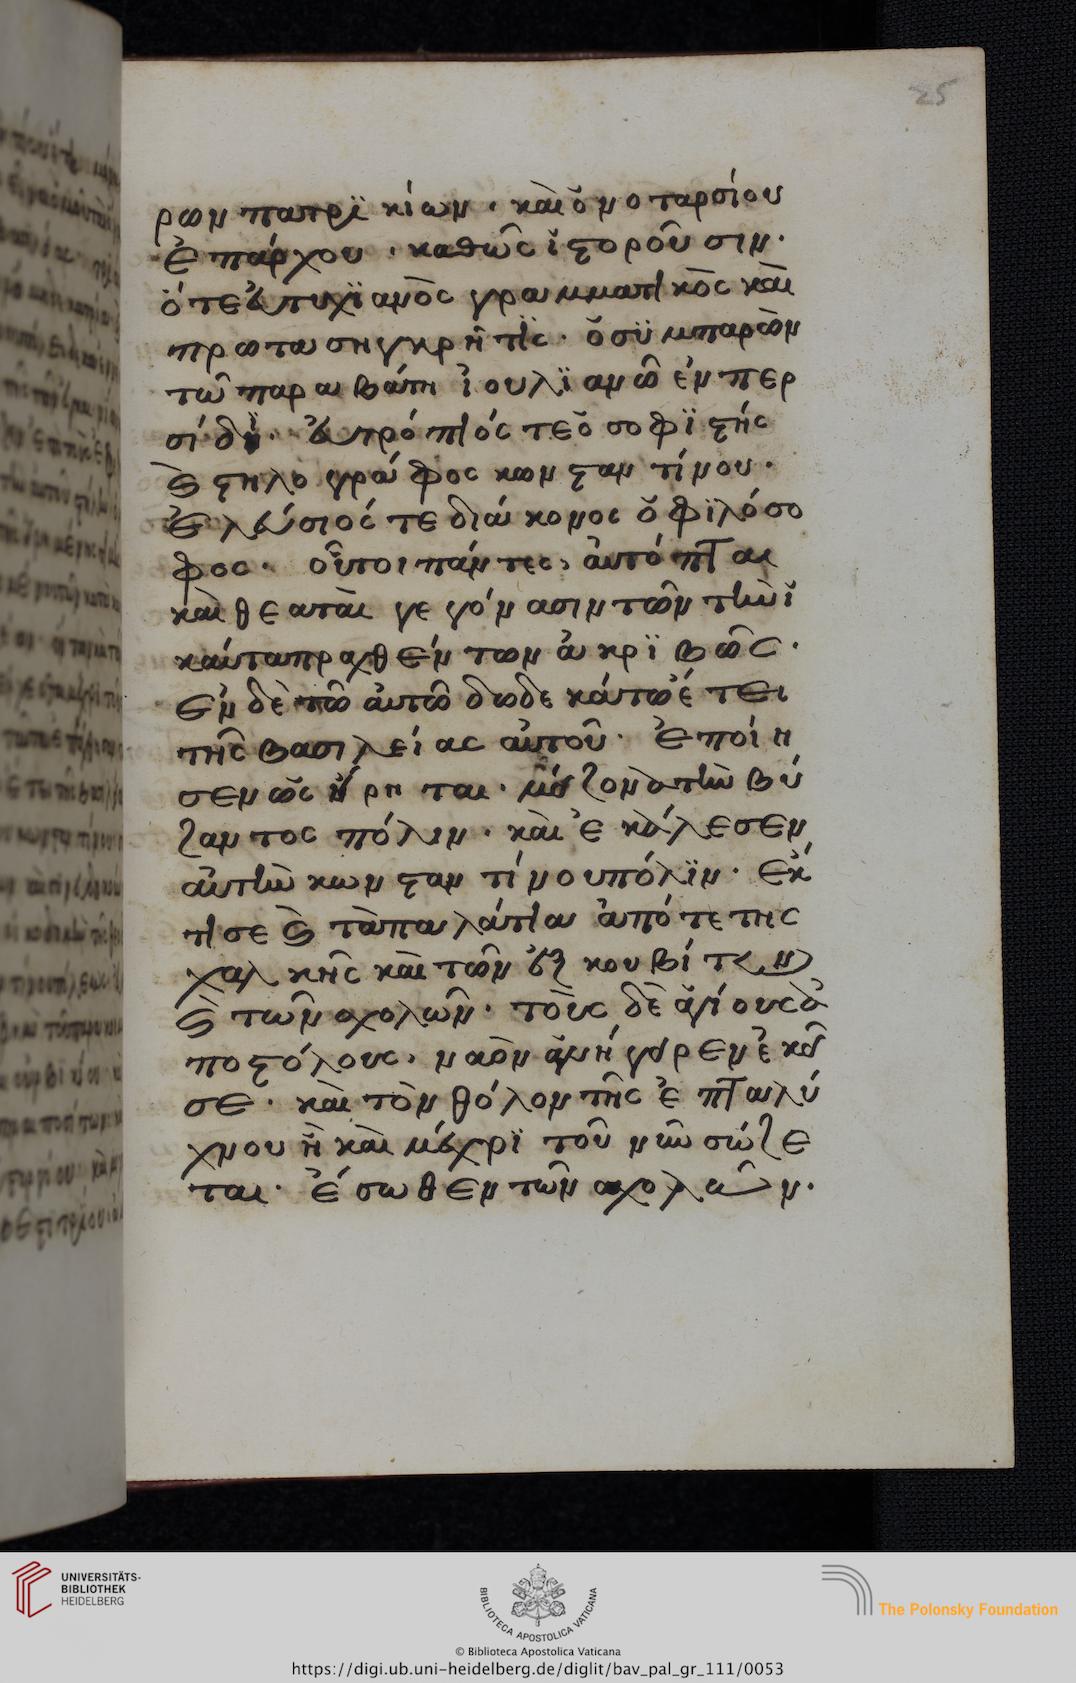 25
ρων πατρϊκίων · καὶ ὁνοταρσίου
ἐπάρχου · καθὼς ἱστοροῦσιν ·
ὅτε εὐτυχϊανὸς γραμματικὸς καὶ
πρωτασηγκρῆτϊς · ὁ σϋμπαρὼν
τῶ παραβάτη ἰουλϊανῶ ἐν περ
σίδϊ · εὐτρόπιός τε ὁ σοφϊστὴς
καὶ στηλογράφος κωνσταντίνου ·
ἐλεύσιός τε διάκονος ὁ φϊλόσο
φος · οὗτοι πάντες, ἀυτόπται
καὶ θεαταὶ γεγόνασιν τῶν τηνϊ
καύτα πραχθέντων ἀκρϊβῶς ·
ἐν δὲ τῶ ἀυτῶ δωδεκάτω ἔτει
τῆς βασιλείας ἀυτοῦ · ἐποίη
σεν ὡς εἴρηται · μείζονα τὴν βύ
ζαντος πόλιν · καὶ ἐκάλεσεν
ἀυτὴν κωνσταντίνουπόλϊν · ἔκ
τισε καὶ τὰ παλάτια ἀπό τε της
χαλκῆς καὶ τῶν ἐξκουβίτων
καὶ τῶν σχολῶν · τοὺς δὲ ἁγίους ἀ
ποστόλους, ναὸν ἀνήγειρεν ἐκεῖ
σε · καὶ τὸν θόλον τῆς ἑπταλύ
χνου ἣ καὶ μέχρϊ τοῦ νῦν σώζε
ται · ἔσωθεν τῶν σχολῶν ·
UNIVERSITÄTS-
BIBLIOTHEK
HEIDELBERG
BIBLIOTECA APOSTOLICA VATICANA
The Polonsky Foundation
© Biblioteca Apostolica Vaticana
https://digi.ub.uni-heidelberg.de/diglit/bav_pal_gr_111/0053